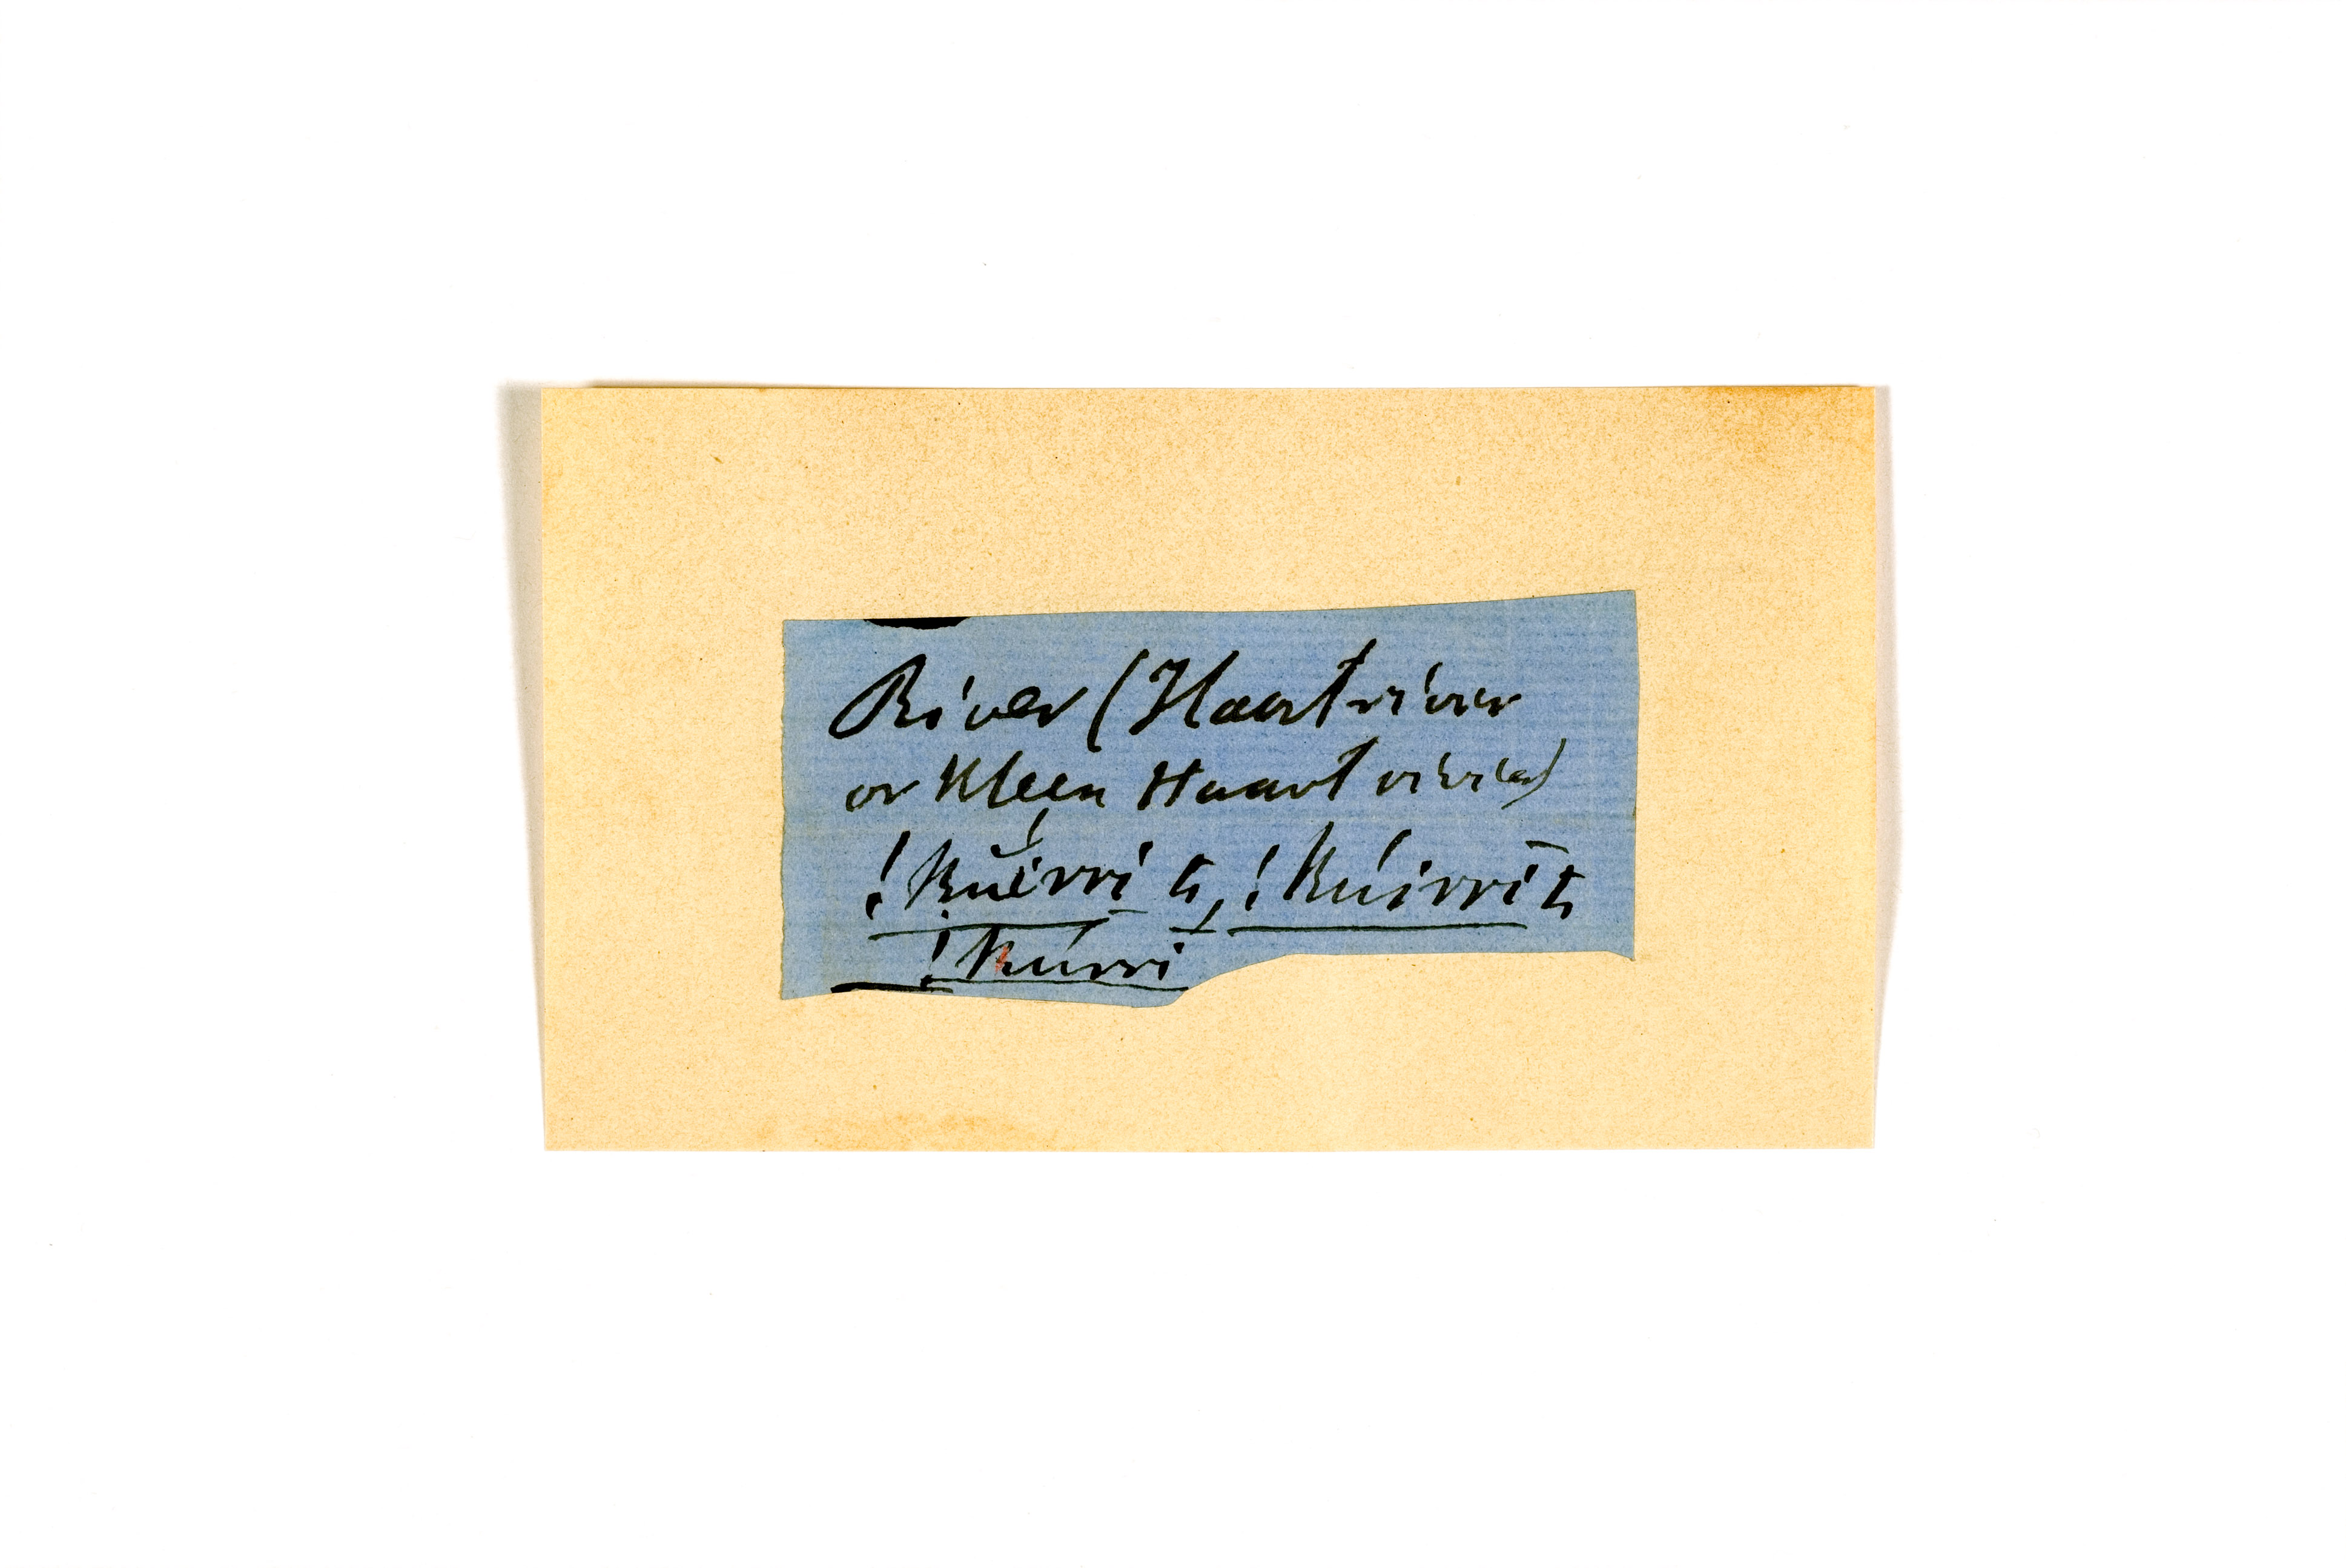 River (Haartrivier
or Kleen Haart rivier)
!kŭírri ti, !kúirri ti
!kúrri